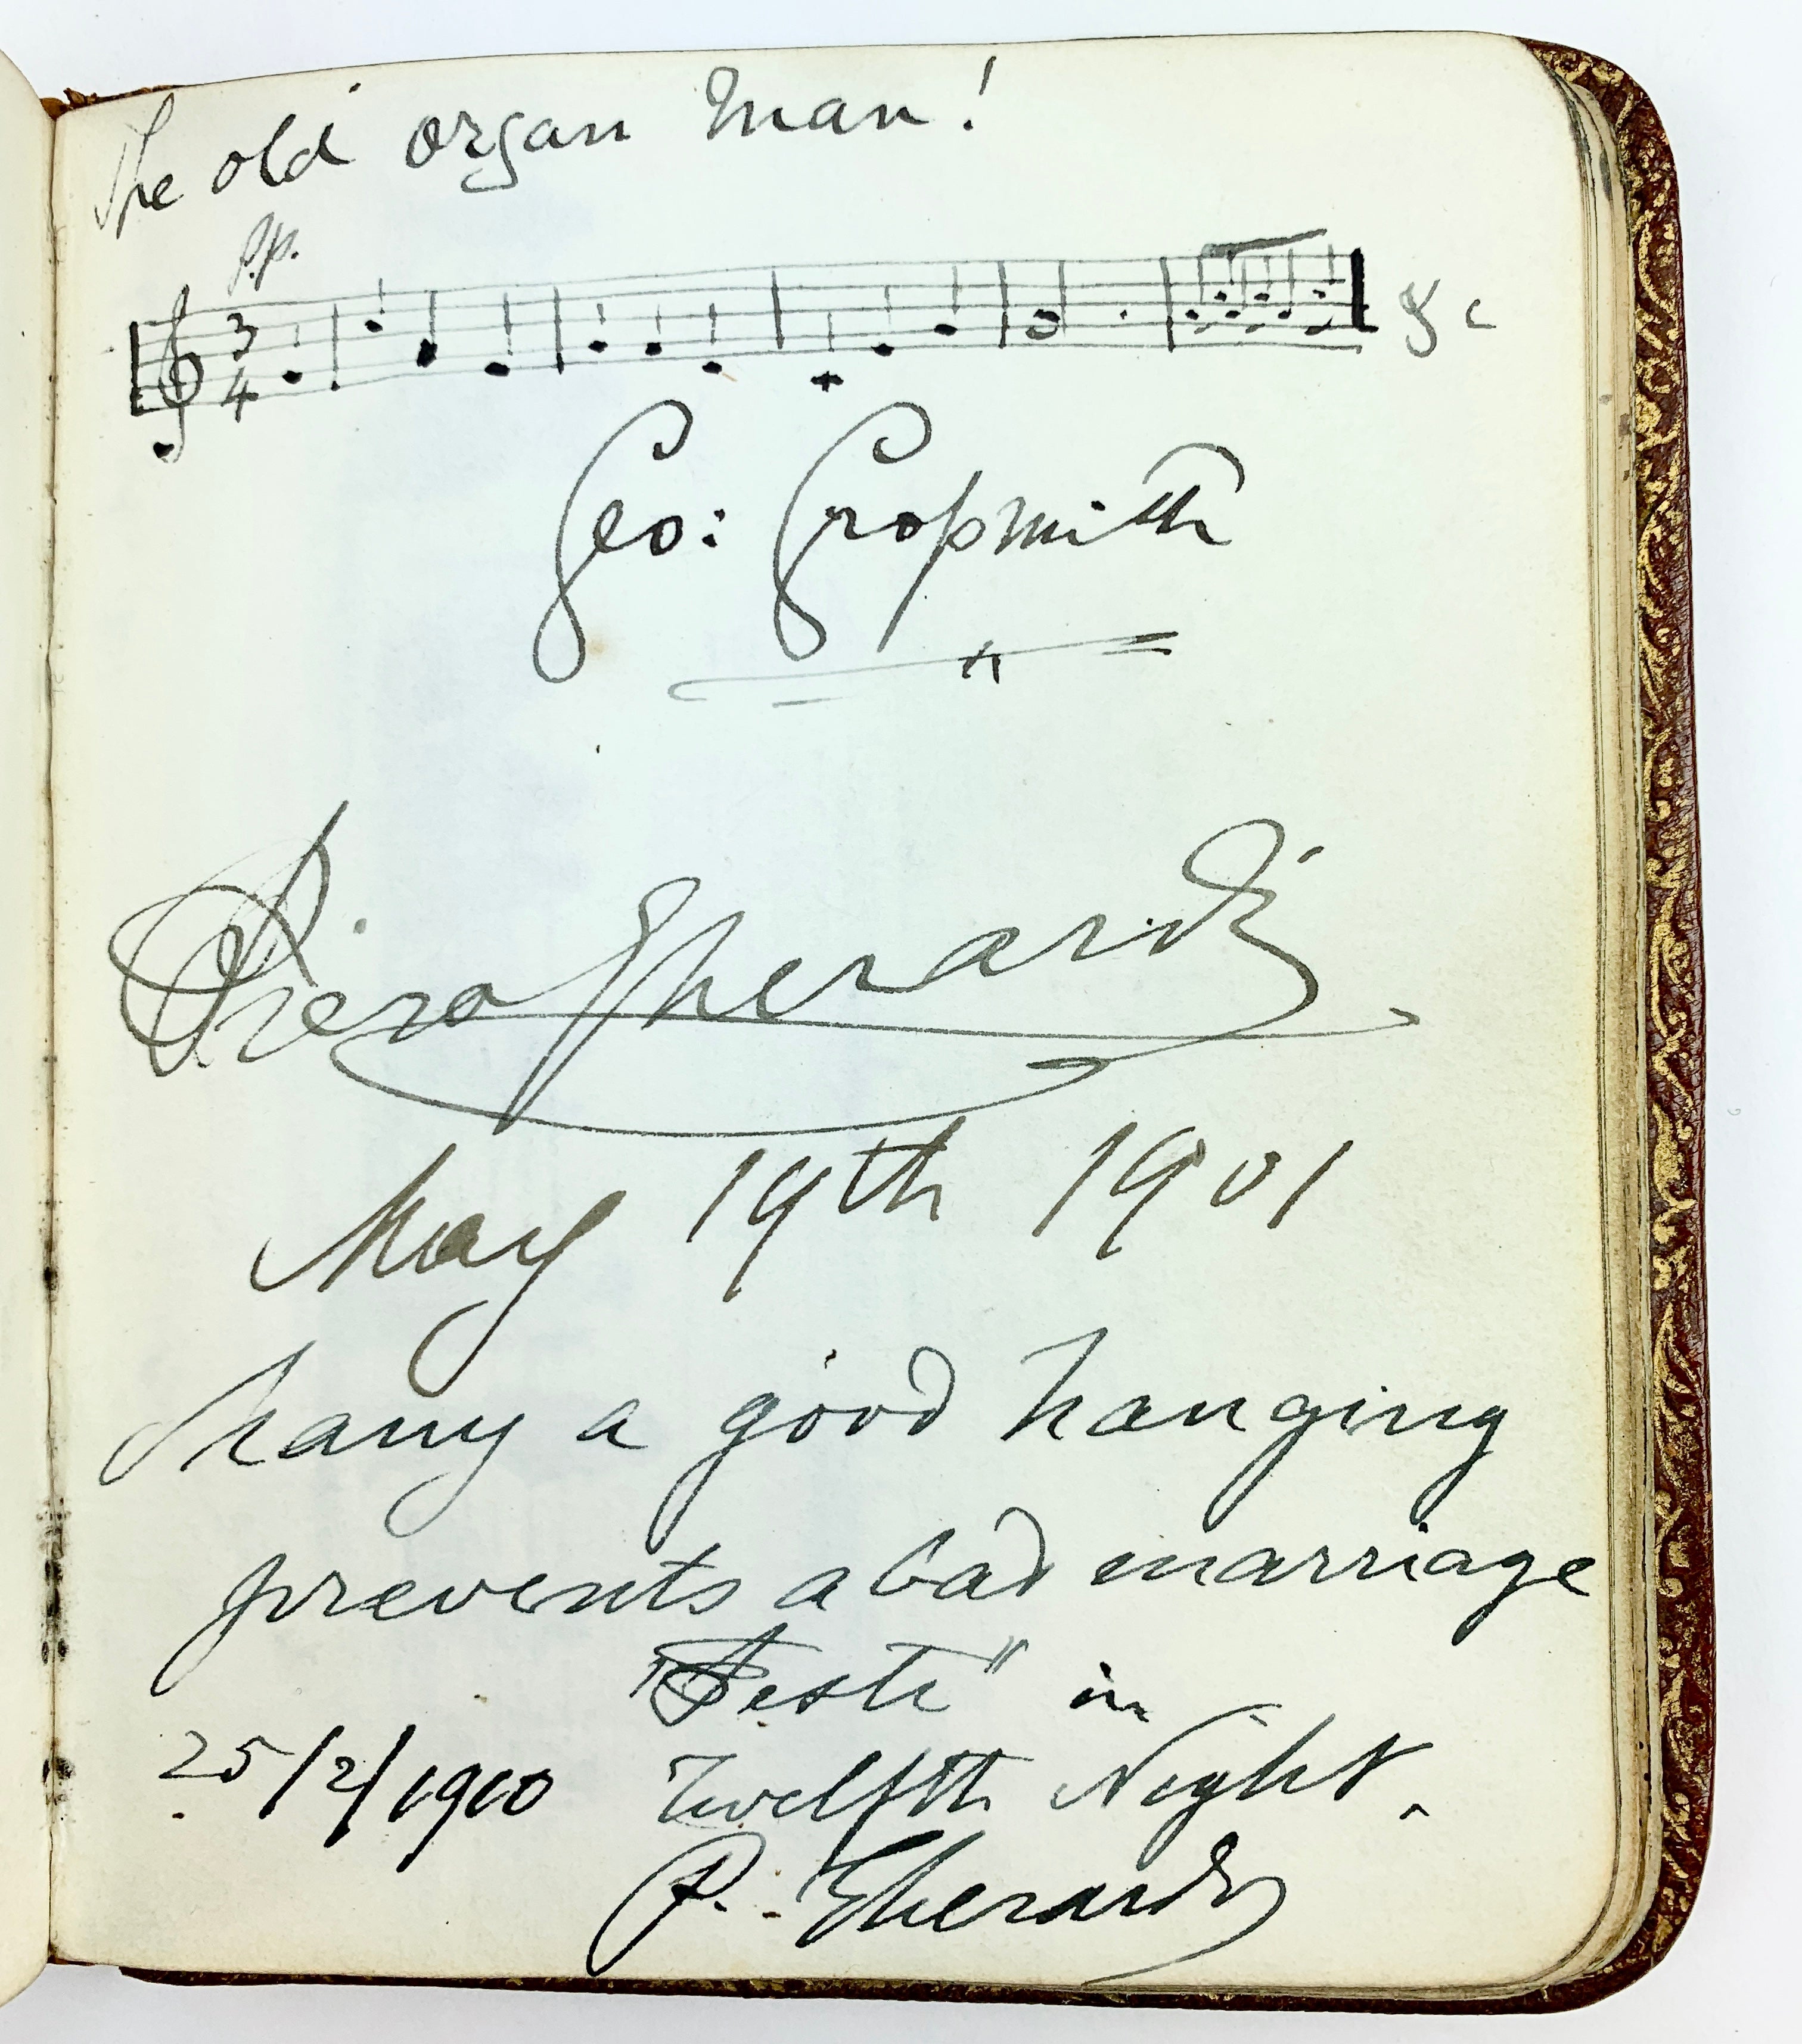 The old organ man!
p.p.
3
4
&c
Geo: Grossmith
Piero Gherardi
May 19th 1901
Many a good hanging
prevents a bad marriage
"Feste" in
25/2/1910 Twelfth Night.
P. Gherardi